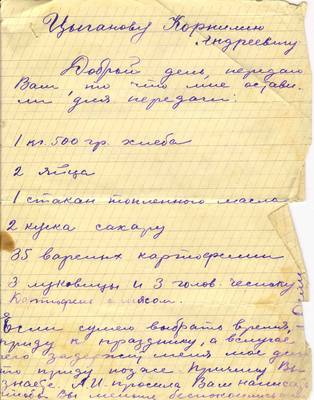 Цыганову Корнилию
Андреевичу
Добрый день, передаю
Вам, то что мне остави-
ли для передачи:
1 кг. 500 гр. хлеба
2 яйца
1 стакан топленного масла
2 куска сахару
35 вареных картофелин
3 луковицы и 3 голов. чесноку
Картофель с мясом.
Если сумею выбрать время, -
приду к празднику, а в случае
чего задержит меня мое де
то приду позже. Причину Вы
знаете. А.И. просила Вам написать
чтобы Вы меньше беспокоились